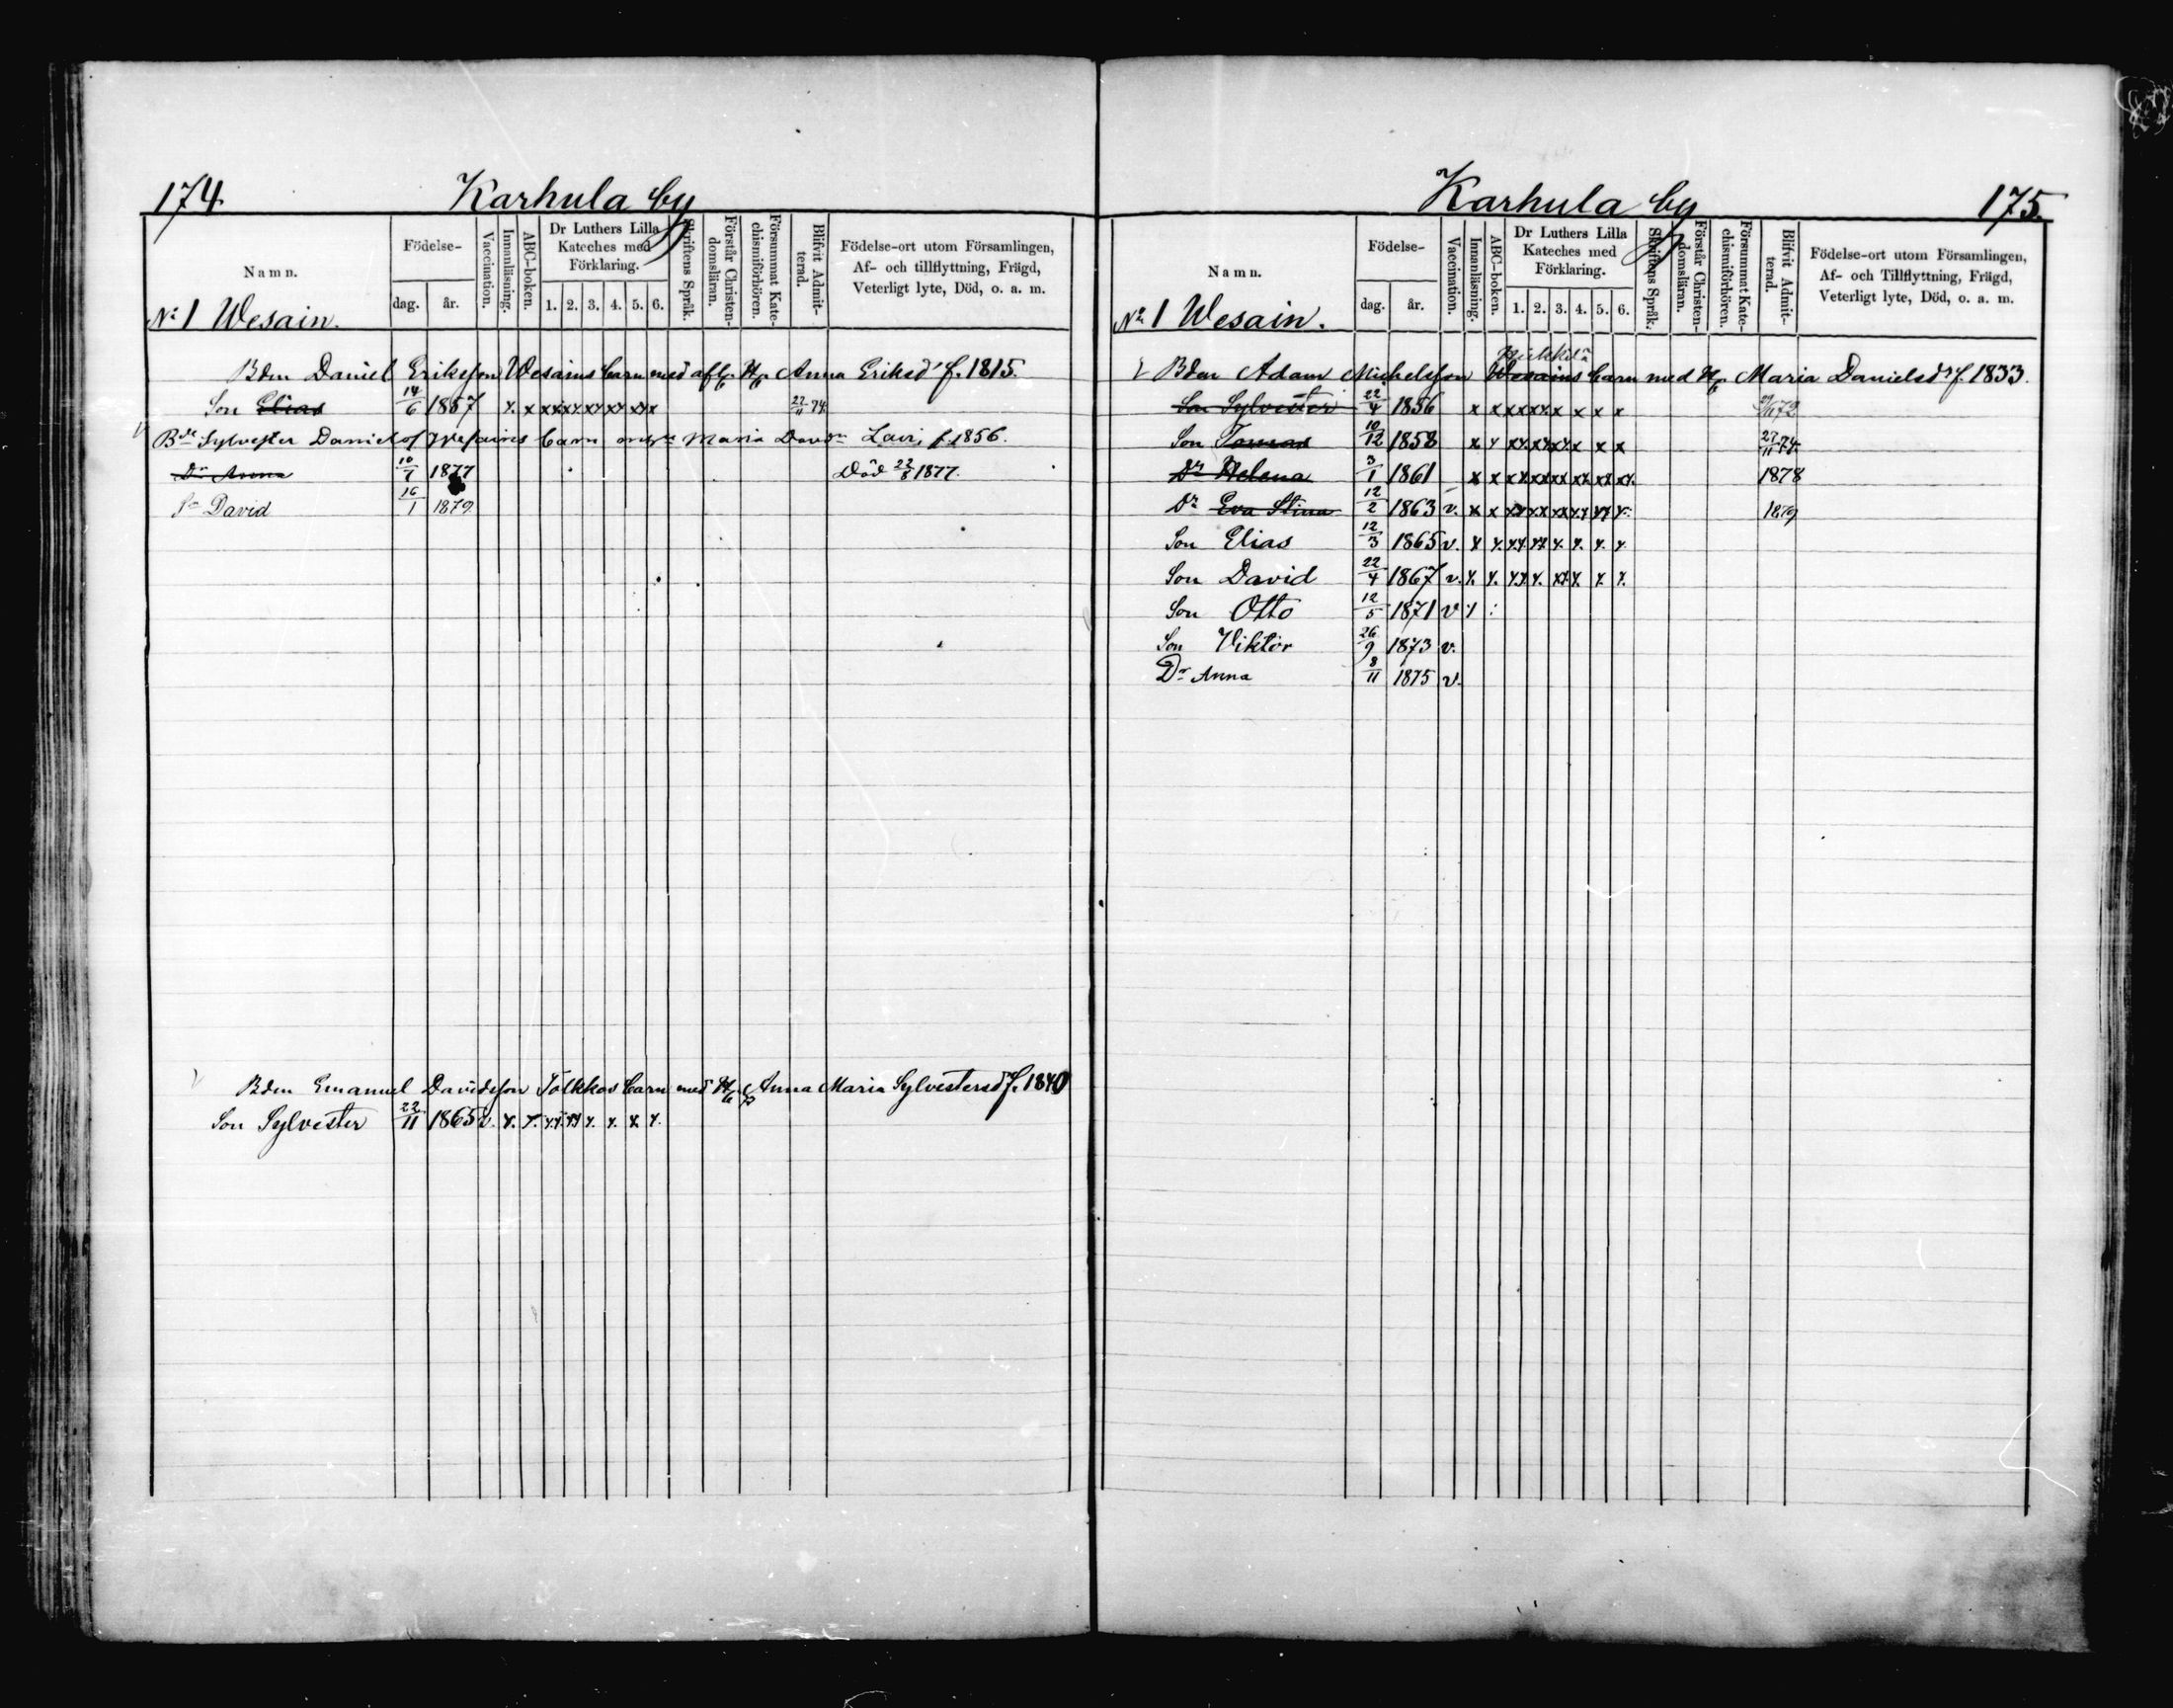 174. Karhula by
Namn.
Födelse-
dag. år.
Vaccination.
Innanläsning.
ABC-boken.
Dr Luthers Lilla Kateches med Förklaring.
1. 2. 3. 4. 5. 6.
Skriftens Språk.
Förstår Christendomsläran.
Försummat Katechismiförhören.
Blifvit Admitterad.
Födelse-ort utom Församlingen, Af- och tillflyttning, Frägd, Veterligt lyte, Död, o. a. m.
No 1 Wesain.
Bdn Daniel Eriksson Wesains barn med afl. H. Anna Eriksdr f. 1815.
Son Elias 14/6 1857 x. x xx xx xx xx xx x 22/11 74
Bde Sylvester Danielss Wesains barn Maria Davdr Lavi, f. 1856.
Dr Anna 10/7 1877 Död 22/8 1877.
Sn David 16/1 1879
Bdn Emanuel Davidsson Tolkkos barn med H. Anna Maria Sylvestersdr f. 1840
Son Sylvester 22/11 1865 v. x. x. xx xx x. x. x. x.
Karhula by 175.
Namn.
Födelse-
dag. år.
Vaccination.
Innanläsning.
ABC-boken.
Dr Luthers Lilla Kateches med Förklaring.
1. 2. 3. 4. 5. 6.
Skriftens Språk.
Förstår Christendomsläran.
Försummat Katechismiförhören.
Blifvit Admitterad.
Födelse-ort utom Församlingen, Af- och Tillflyttning, Frägd, Veterligt lyte, Död, o. a. m.
No 1 Wesain.
Bdn Adam Michelsson Wesains barn med H. Maria Danielsdr f. 1833.
Son Sylvester 22/4 1856 x x xx xx x x x x
Son 10/12 1858 x x xx xx xx x x x 27/11 74.
Dr Helena 3/1 1861 x x xx xx xx xx xx xx 1878
Dr Eva Stina 12/2 1863 v. x x xx xx xx xx xx x. 1879
Son Elias 12/3 1865 v. x x. xx xx x. x. x. x.
Son David 22/4 1867 v. x. x. xx x. xx x. x. x.
Son Otto 12/5 1871 v
Son Viktor 26/9 1873 v.
Dr Anna 8/11 1875 v.